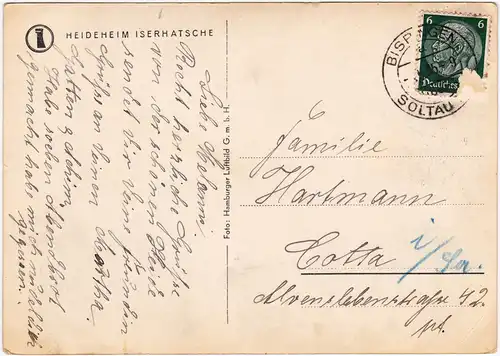 HEIDEHEIM ISERHATSCHE
Liebe Melanni!
Recht herzliche Grüße
von der schönen Heide
sendet Dir Deine Freundin
Martha
Grüße an Deinen
Gatten &
Habe soeben Abendbrot
gemacht habe mich
Foto: Hamburger Luftbild G. m. b. H.
6 6
Deutsches
BISPINGEN
SOLTAU
Familie
Hartmann
Cotta i/Sa.
Alvenslebenstraße 42
pt.